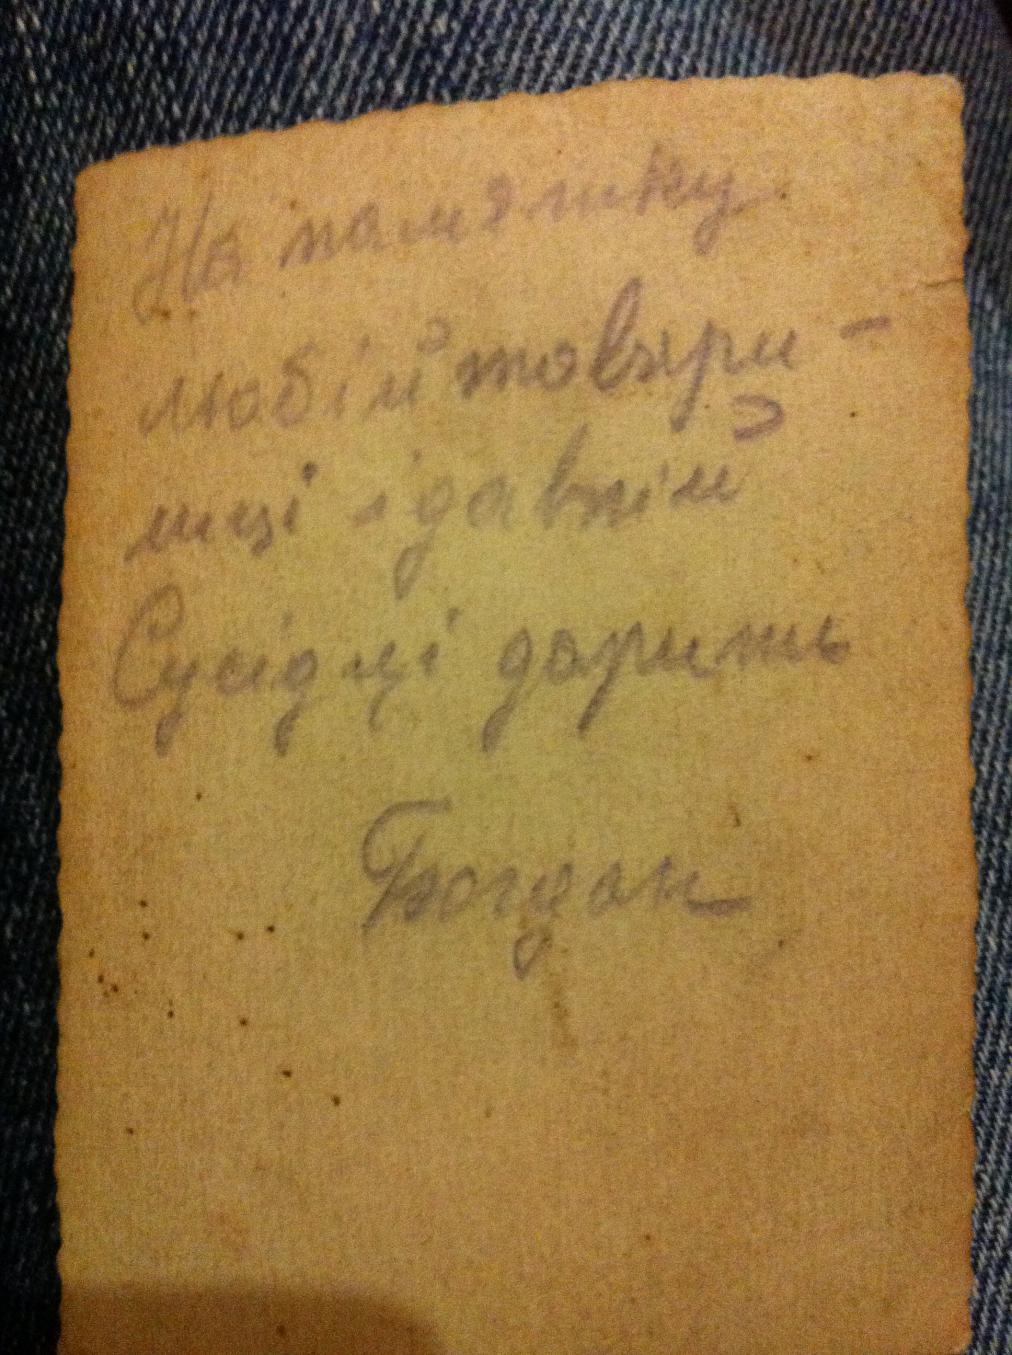 На памятку
любій товари-
шці і давній
Сусідці дарить
Богдан